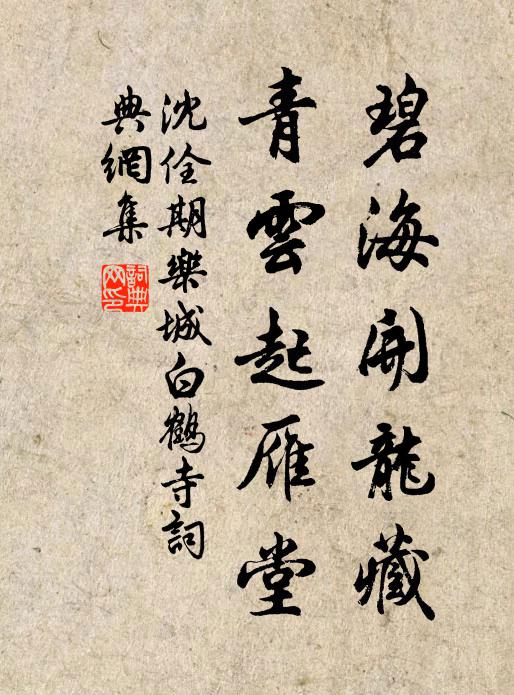 碧海開龍藏
青雲起雁堂
沈佺期樂城白鶴寺詞
典網集
詞典網印